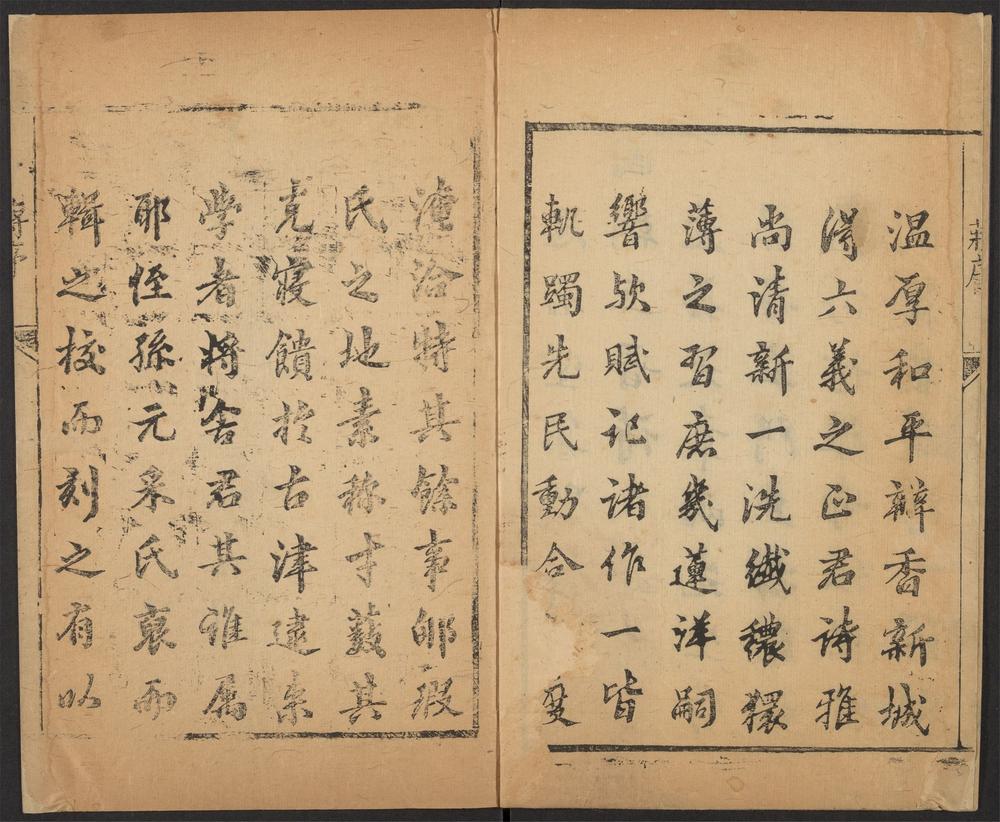 温厚和平瓣香新城
得六義之正君詩雅
尚清新一洗纖穠獧
薄之習庶幾遵洋嗣
響欤賦記諸作一皆
軌躅先民動合 度
淹洽特其餘事郇瑕
氏之地素称才薮其
克寝饋於古津逮来
學者将舍君其谁属
耶侄孫元系氏裒而
輯之校而刻之有以